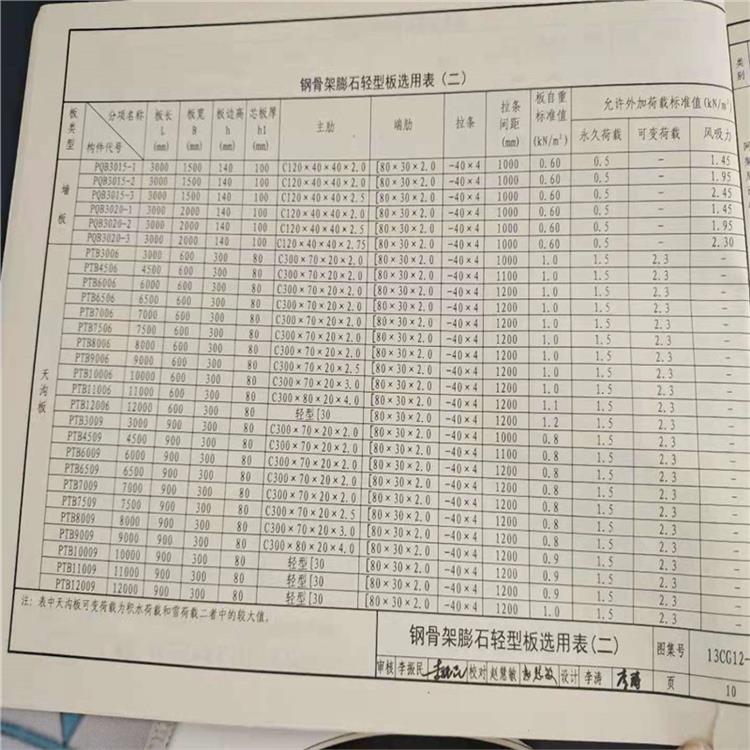 钢骨架膨石轻型板选用表(二)
板类型 分项名称 构件代号 板长 L (mm) 板宽 B (mm) 板边高 h (mm) 芯板厚 h1 (mm) 主肋 端肋 拉条 拉条间距 (mm) 板自重标准值 (kN/m²) 允许外加荷载标准值(kN/m²)
永久荷载 可变荷载 风吸力
墙板
PQB3015-1 3000 1500 140 100 C120×40×40×2.0 [80×30×2.0 -40×4 1000 0.60 0.5 - 1.45
PQB3015-2 3000 1500 140 100 C120×40×40×2.0 [80×30×2.0 -40×4 1000 0.60 0.5 - 1.95
PQB3015-3 3000 1500 140 100 C120×40×40×2.5 [80×30×2.0 -40×4 1000 0.60 0.5 - 2.45
PQB3020-1 3000 2000 140 100 C120×40×40×2.0 [80×30×2.0 -40×4 1000 0.60 0.5 - 1.45
PQB3020-2 3000 2000 140 100 C120×40×40×2.5 [80×30×2.0 -40×4 1000 0.60 0.5 - 1.95
PQB3020-3 3000 2000 140 100 C120×40×40×2.75 [80×30×2.0 -40×4 1000 0.60 0.5 - 2.30
天沟板
PTB3006 3000 600 300 80 C300×70×20×2.0 [80×30×2.0 -40×4 1000 1.0 1.5 2.3 -
PTB4506 4500 600 300 80 C300×70×20×2.0 [80×30×2.0 -40×4 1100 1.0 1.5 2.3 -
PTB6006 6000 600 300 80 C300×70×20×2.0 [80×30×2.0 -40×4 1200 1.0 1.5 2.3 -
PTB6506 6500 600 300 80 C300×70×20×2.0 [80×30×2.0 -40×4 1200 1.0 1.5 2.3 -
PTB7006 7000 600 300 80 C300×70×20×2.0 [80×30×2.0 -40×4 1200 1.0 1.5 2.3 -
PTB7506 7500 600 300 80 C300×70×20×2.0 [80×30×2.0 -40×4 1200 1.0 1.5 2.3 -
PTB8006 8000 600 300 80 C300×70×20×2.0 [80×30×2.0 -40×4 1200 1.0 1.5 2.3 -
PTB9006 9000 600 300 80 C300×70×20×2.5 [80×30×2.0 -40×4 1200 1.0 1.5 2.3 -
PTB10006 10000 600 300 80 C300×70×20×3.0 [80×30×2.0 -40×4 1200 1.0 1.5 2.3 -
PTB11006 11000 600 300 80 C300×80×20×4.0 [80×30×2.0 -40×4 1200 1.1 1.5 2.3 -
PTB12006 12000 600 300 80 轻型[30 [80×30×2.0 -40×4 1200 1.2 1.5 2.3 -
PTB3009 3000 900 300 80 C300×70×20×2.0 [80×30×2.0 -40×4 1000 0.8 1.5 2.3 -
PTB4509 4500 900 300 80 C300×70×20×2.0 [80×30×2.0 -40×4 1100 0.8 1.5 2.3 -
PTB6009 6000 900 300 80 C300×70×20×2.0 [80×30×2.0 -40×4 1200 0.8 1.5 2.3 -
PTB6509 6500 900 300 80 C300×70×20×2.0 [80×30×2.0 -40×4 1200 0.8 1.5 2.3 -
PTB7009 7000 900 300 80 C300×70×20×2.0 [80×30×2.0 -40×4 1200 0.8 1.5 2.3 -
PTB7509 7500 900 300 80 C300×70×20×2.5 [80×30×2.0 -40×4 1200 0.8 1.5 2.3 -
PTB8009 8000 900 300 80 C300×70×20×3.0 [80×30×2.0 -40×4 1200 0.8 1.5 2.3 -
PTB9009 9000 900 300 80 C300×80×20×4.0 [80×30×2.0 -40×4 1200 0.9 1.5 2.3 -
PTB10009 10000 900 300 80 轻型[30 [80×30×2.0 -40×4 1200 0.9 1.5 2.3 -
PTB11009 11000 900 300 80 轻型[30 [80×30×2.0 -40×4 1200 0.9 1.5 2.3 -
PTB12009 12000 900 300 80 轻型[30 [80×30×2.0 -40×4 1200 1.0 1.5 2.3 -
注: 表中天沟板可变荷载为积水荷载和雪荷载二者中的较大值。
钢骨架膨石轻型板选用表(二) 图集号 13CG12-
审核 李振民 校对 赵慧敏 设计 李涛 页 10
类别